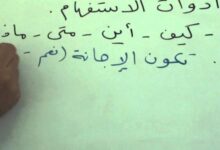 أدوات الاستفهام.
- كيف - أين - متى - ماذ
. تكون الإجابة (نعم -